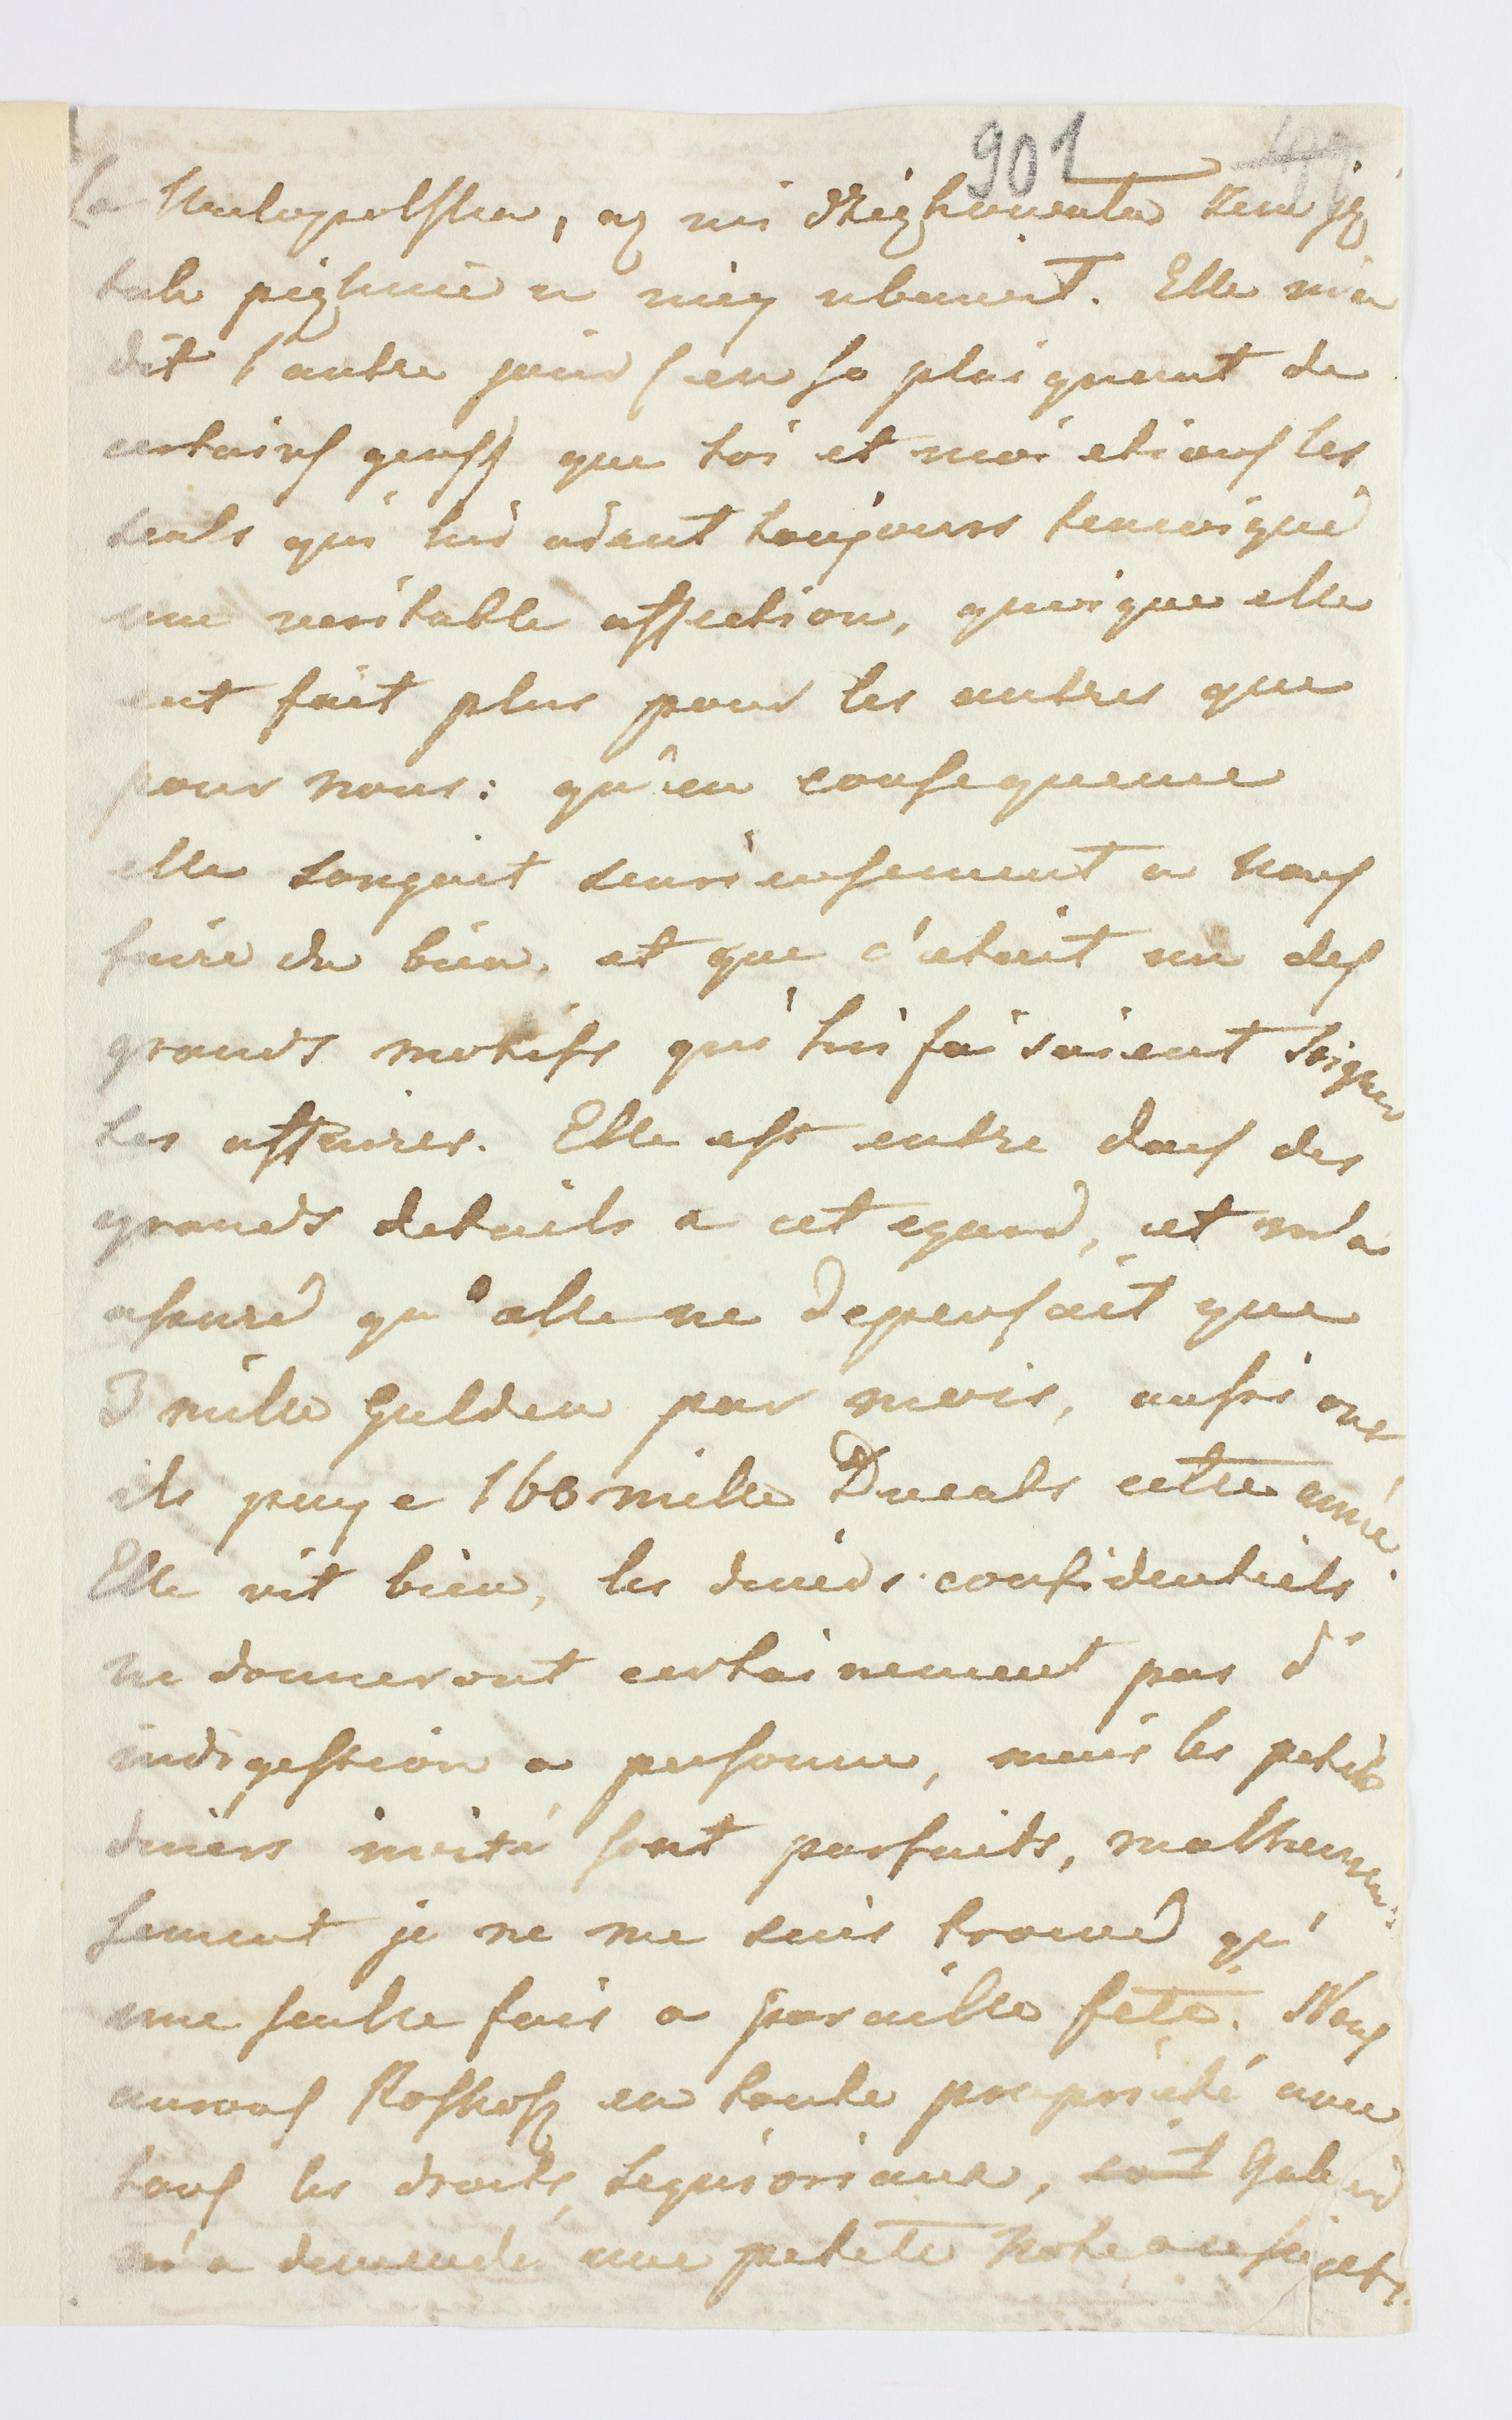 901
la Wielopolska, az mi dziękowała żem ją
tak pięknie u niey ubawił. Elle m'a
dit l'autre jour (en se plaignant de
certains gens) que toi et moi etions les
seuls qui lui aiant toujours temoigné
une veritable affection, quoique elle
eut fait plus pour les autres que
pour nous: qu'en consequence
elle songait serieusement a nous
faire du bien, et que c'etait un des
grands motifs qui lui faisaient soigner
ses affaires. Elle est entre dans des
grands details a cet egard, et m'a
assuré qu'elle ne depensait que
3 mille Gulden par mois, aussi on
ils paye 160 mille Ducats cette année.
Elle vit bien, les diners confidentiels
ne donneront certainement pas d'
indigestion a personne, mais les petits
diners invité sont parfaits, malheureu-
sement je ne me suis trouvé qu'
une seulle fois a paraille fete. Nous
aurons Roskosz en toute proprieté avec
tous les droits seignioriaux,
m'a demendé une petite note a ce sujet.